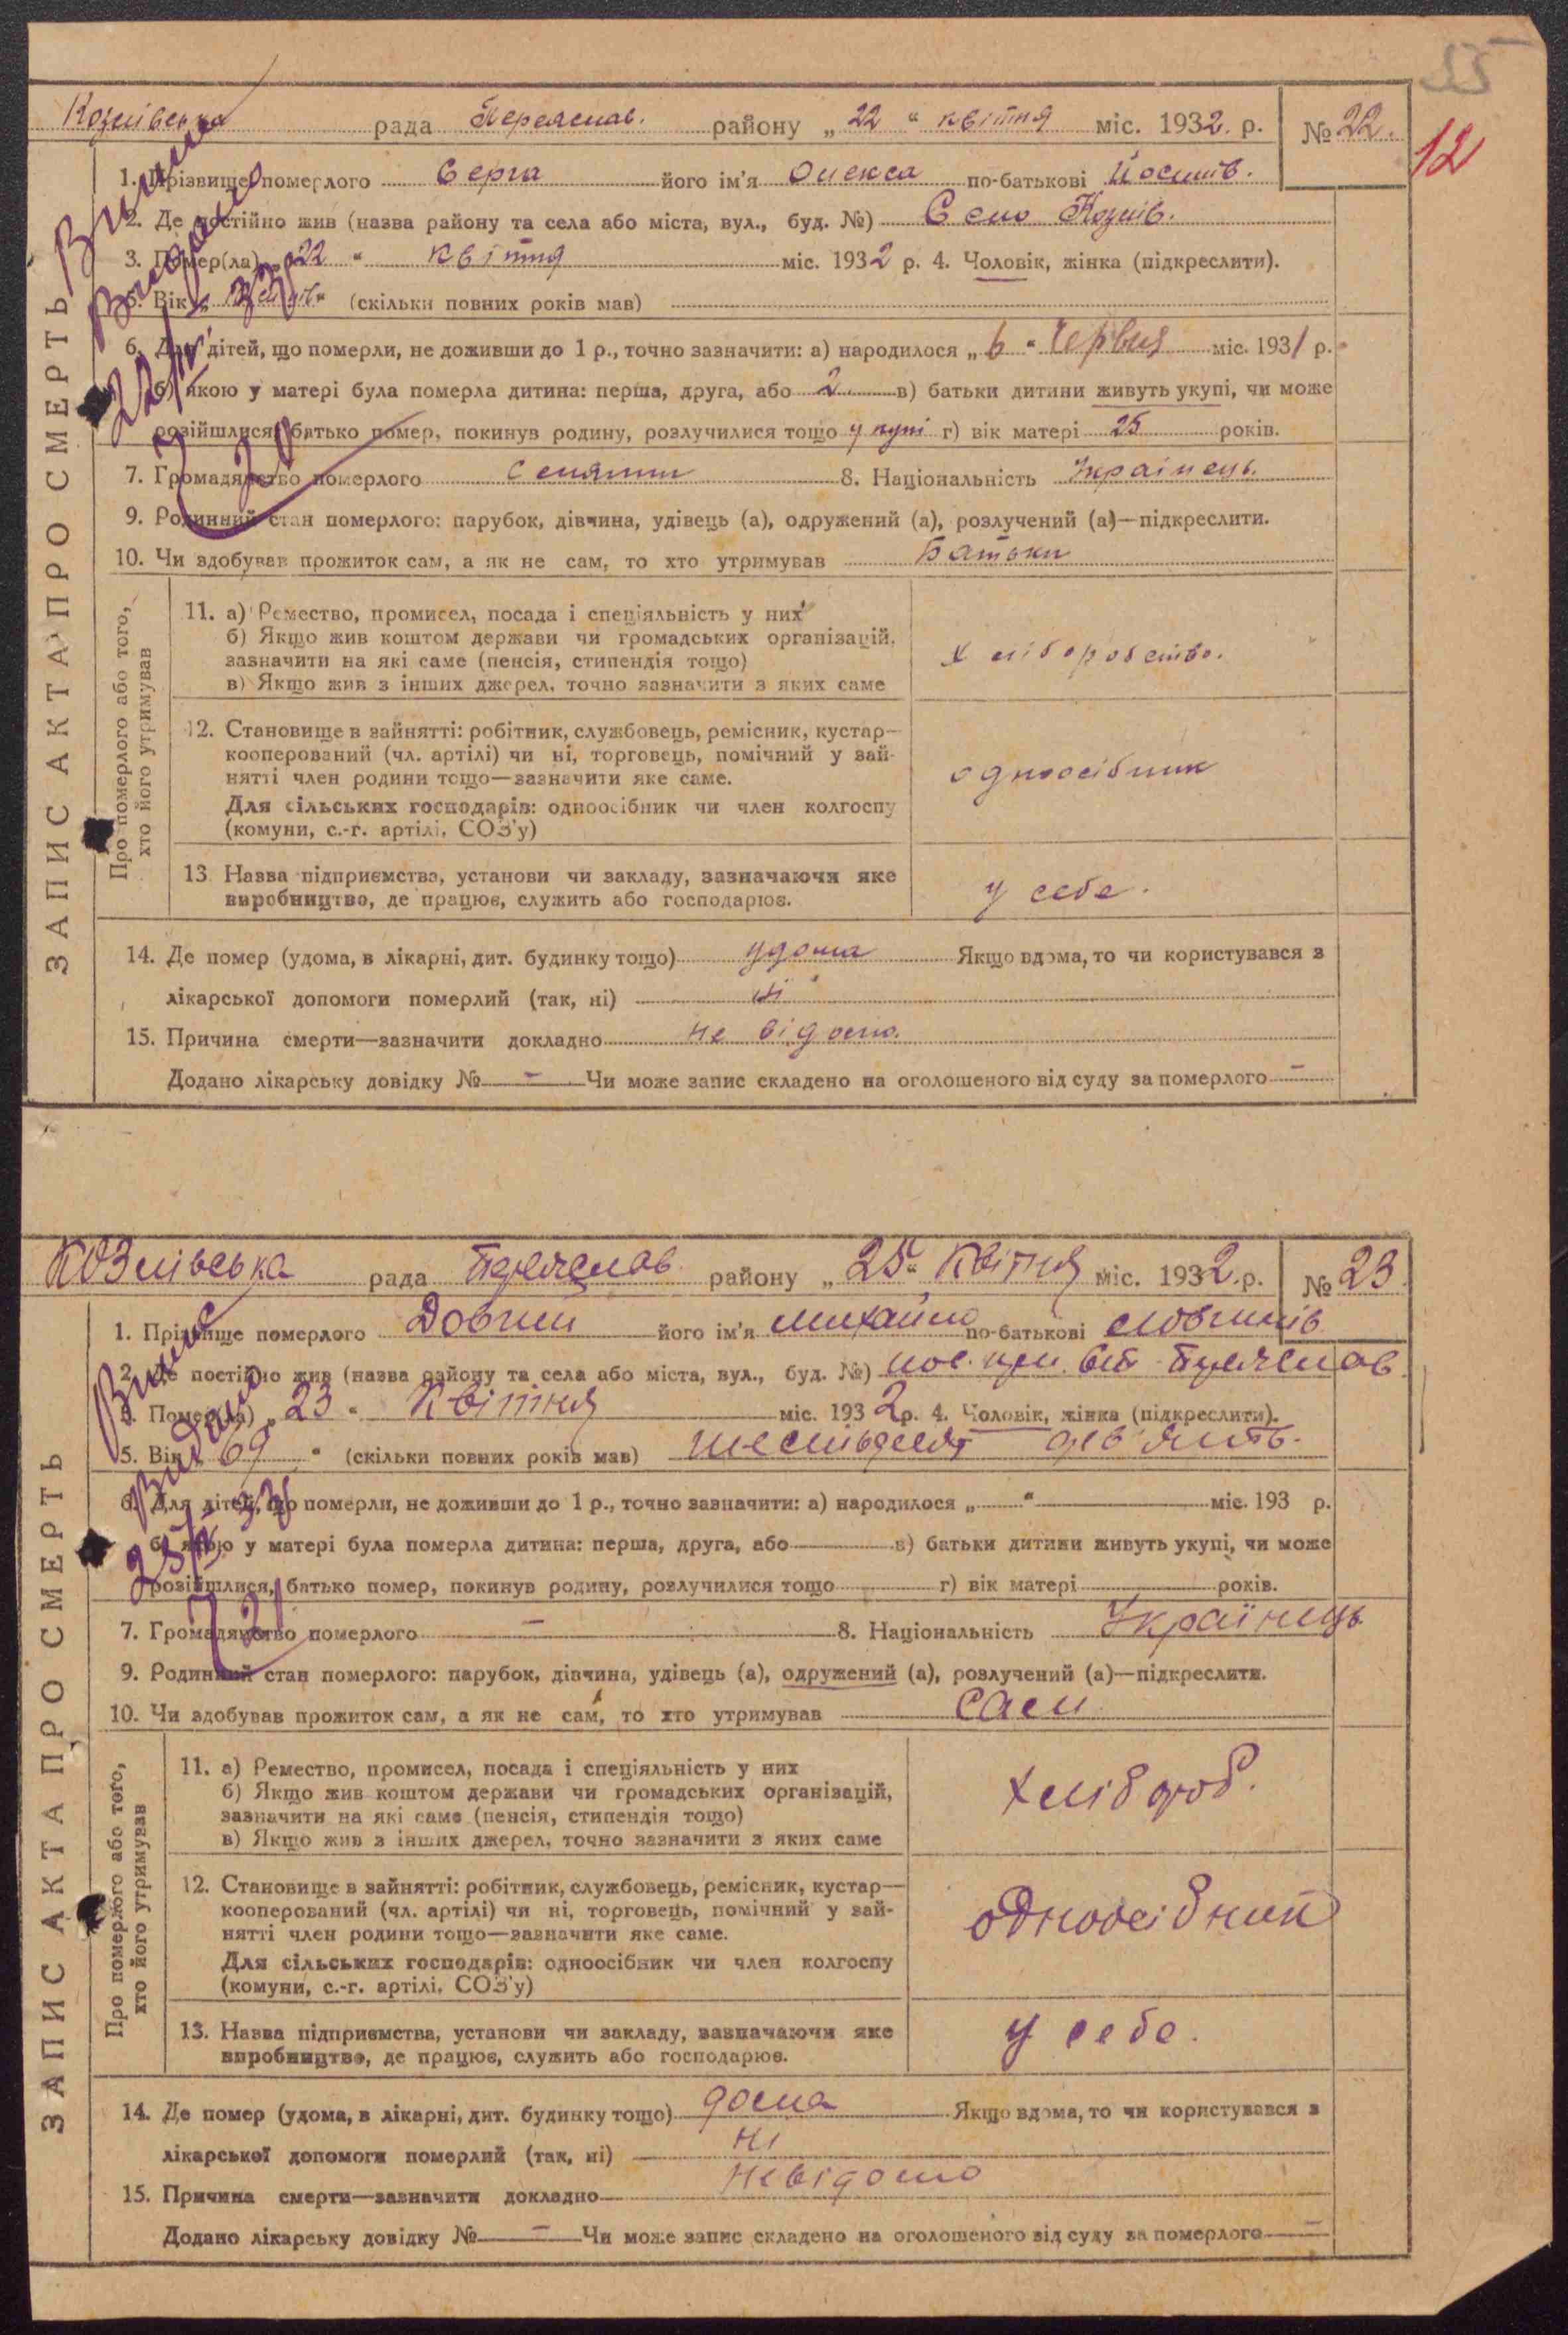 55
Козлівська рада Переяслав. району „ 22 “ квітня міс. 1932. р. № 22.
12
ЗАПИС АКТА ПРО СМЕРТЬ
1. Прізвище померлого Серга його ім'я Олекса по-батькові Йосипів.
2. Де постійно жив (назва району та села або міста, вул., буд. №) Село Козлів.
3. Помер(ла) „ 22 “ квітня міс. 1932 р. 4. Чоловік, жінка (підкреслити).
5. Вік (скільки повних років мав)
6. Для дітей, що померли, не доживши до 1 р., точно зазначити: а) народилося „ 6 “ Червня міс. 1931 р.
б) якою у матері була померла дитина: перша, друга, або 2 в) батьки дитини живуть укупі, чи може
розійшлися, батько помер, покинув родину, розлучилися тощо укупі г) вік матері 25 років.
7. Громадянство померлого Селянин 8. Національність Українець.
9. Родинний стан померлого: парубок, дівчина, удівець (а), одружений (а), розлучений (а)—підкреслити.
10. Чи здобував прожиток сам, а як не сам, то хто утримував Батьки
Про померлого або того, хто його утримував
11. а) Ремество, промисел, посада і спеціяльність у них
б) Якщо жив коштом держави чи громадських організацій,
зазначити на які саме (пенсія, стипендія тощо)
в) Якщо жив з інших джерел, точно зазначити з яких саме
хліборобство.
12. Становище в зайнятті: робітник, службовець, ремісник, кустар—
кооперований (чл. артілі) чи ні, торговець, помічний у зай-
нятті член родини тощо—зазначити яке саме.
Для сільських господарів: одноосібник чи член колгоспу
(комуни, с.-г. артілі, СОЗ'у)
одноосібник
13. Назва підприємства, установи чи закладу, зазначаючи яке
виробництво, де працює, служить або господарює.
у себе.
14. Де помер (удома, в лікарні, дит. будинку тощо) удома Якщо вдома, то чи користувався з
лікарської допомоги померлий (так, ні) ні
15. Причина смерти—зазначити докладно не відомо.
Додано лікарську довідку № — Чи може запис складено на оголошеного від суду за померлого —
Козлівська рада Переяслав. району „ 25 “ Квітня міс. 1932. р. № 23.
ЗАПИС АКТА ПРО СМЕРТЬ
1. Прізвище померлого Довгий його ім'я Михайло по-батькові
2. Де постійно жив (назва району та села або міста, вул., буд. №) Переяслав
3. Помер(ла) „ 23 “ Квітня міс. 1932 р. 4. Чоловік, жінка (підкреслити).
5. Вік „ 69 “ (скільки повних років мав) шестьдесят дев'ять.
6. Для дітей, що померли, не доживши до 1 р., точно зазначити: а) народилося „ “ міс. 193 р.
б) якою у матері була померла дитина: перша, друга, або в) батьки дитини живуть укупі, чи може
розійшлися, батько помер, покинув родину, розлучилися тощо г) вік матері років.
7. Громадянство померлого — 8. Національність Українець
9. Родинний стан померлого: парубок, дівчина, удівець (а), одружений (а), розлучений (а)—підкреслити.
10. Чи здобував прожиток сам, а як не сам, то хто утримував сам
Про померлого або того, хто його утримував
11. а) Ремество, промисел, посада і спеціяльність у них
б) Якщо жив коштом держави чи громадських організацій,
зазначити на які саме (пенсія, стипендія тощо)
в) Якщо жив з інших джерел, точно зазначити з яких саме
хлібороб.
12. Становище в зайнятті: робітник, службовець, ремісник, кустар—
кооперований (чл. артілі) чи ні, торговець, помічний у зай-
нятті член родини тощо—зазначити яке саме.
Для сільських господарів: одноосібник чи член колгоспу
(комуни, с.-г. артілі, СОЗ'у)
одноосібний
13. Назва підприємства, установи чи закладу, зазначаючи яке
виробництво, де працює, служить або господарює.
у себе.
14. Де помер (удома, в лікарні, дит. будинку тощо) дома Якщо вдома, то чи користувався з
лікарської допомоги померлий (так, ні) ні
15. Причина смерти—зазначити докладно невідомо
Додано лікарську довідку № — Чи може запис складено на оголошеного від суду за померлого —